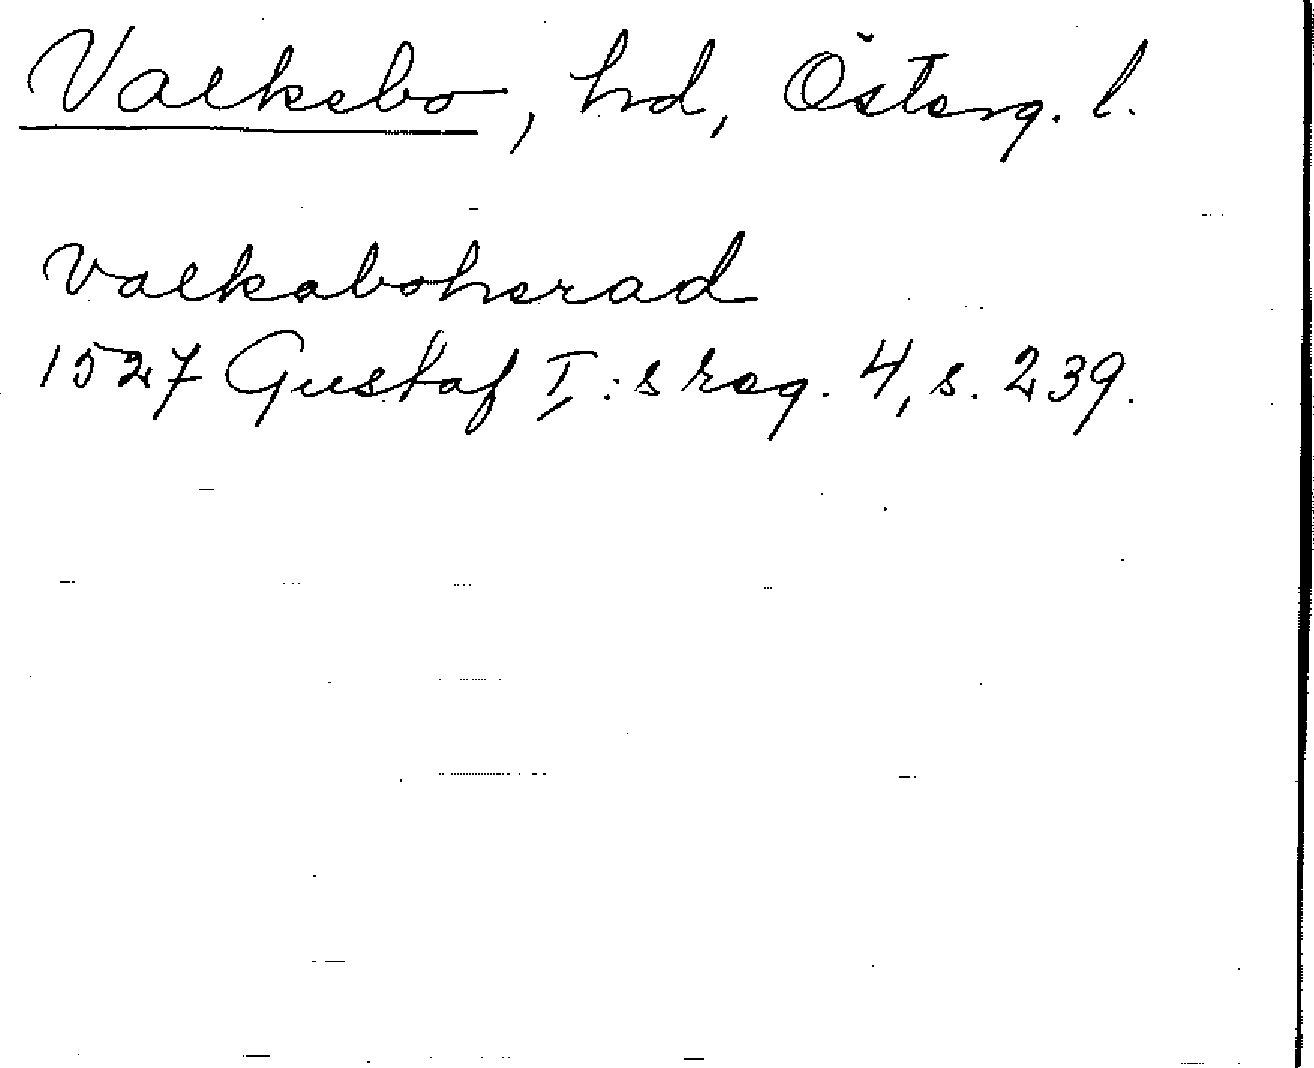 Valkebo, hd, Österg. l.
valkaboherad
1527 Gustaf I:s reg. 4, s. 239.